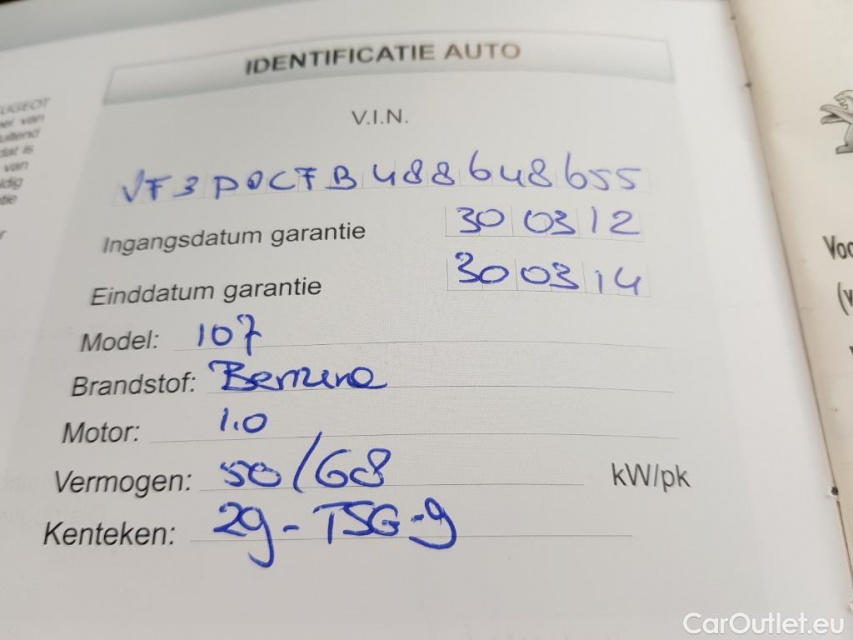 IDENTIFICATIE AUTO
V.I.N.
VF3P0CFB488648655
Ingangsdatum garantie 30 03 12
Einddatum garantie 30 03 14
Model: 107
Brandstof: Benzine
Motor: 1.0
Vermogen: 50/68 kW/pk
Kenteken: 29-TSG-9
EUGEOT
van
uitend
dat is
van
ldig
tie
r
Voo
(v
CarOutlet.eu